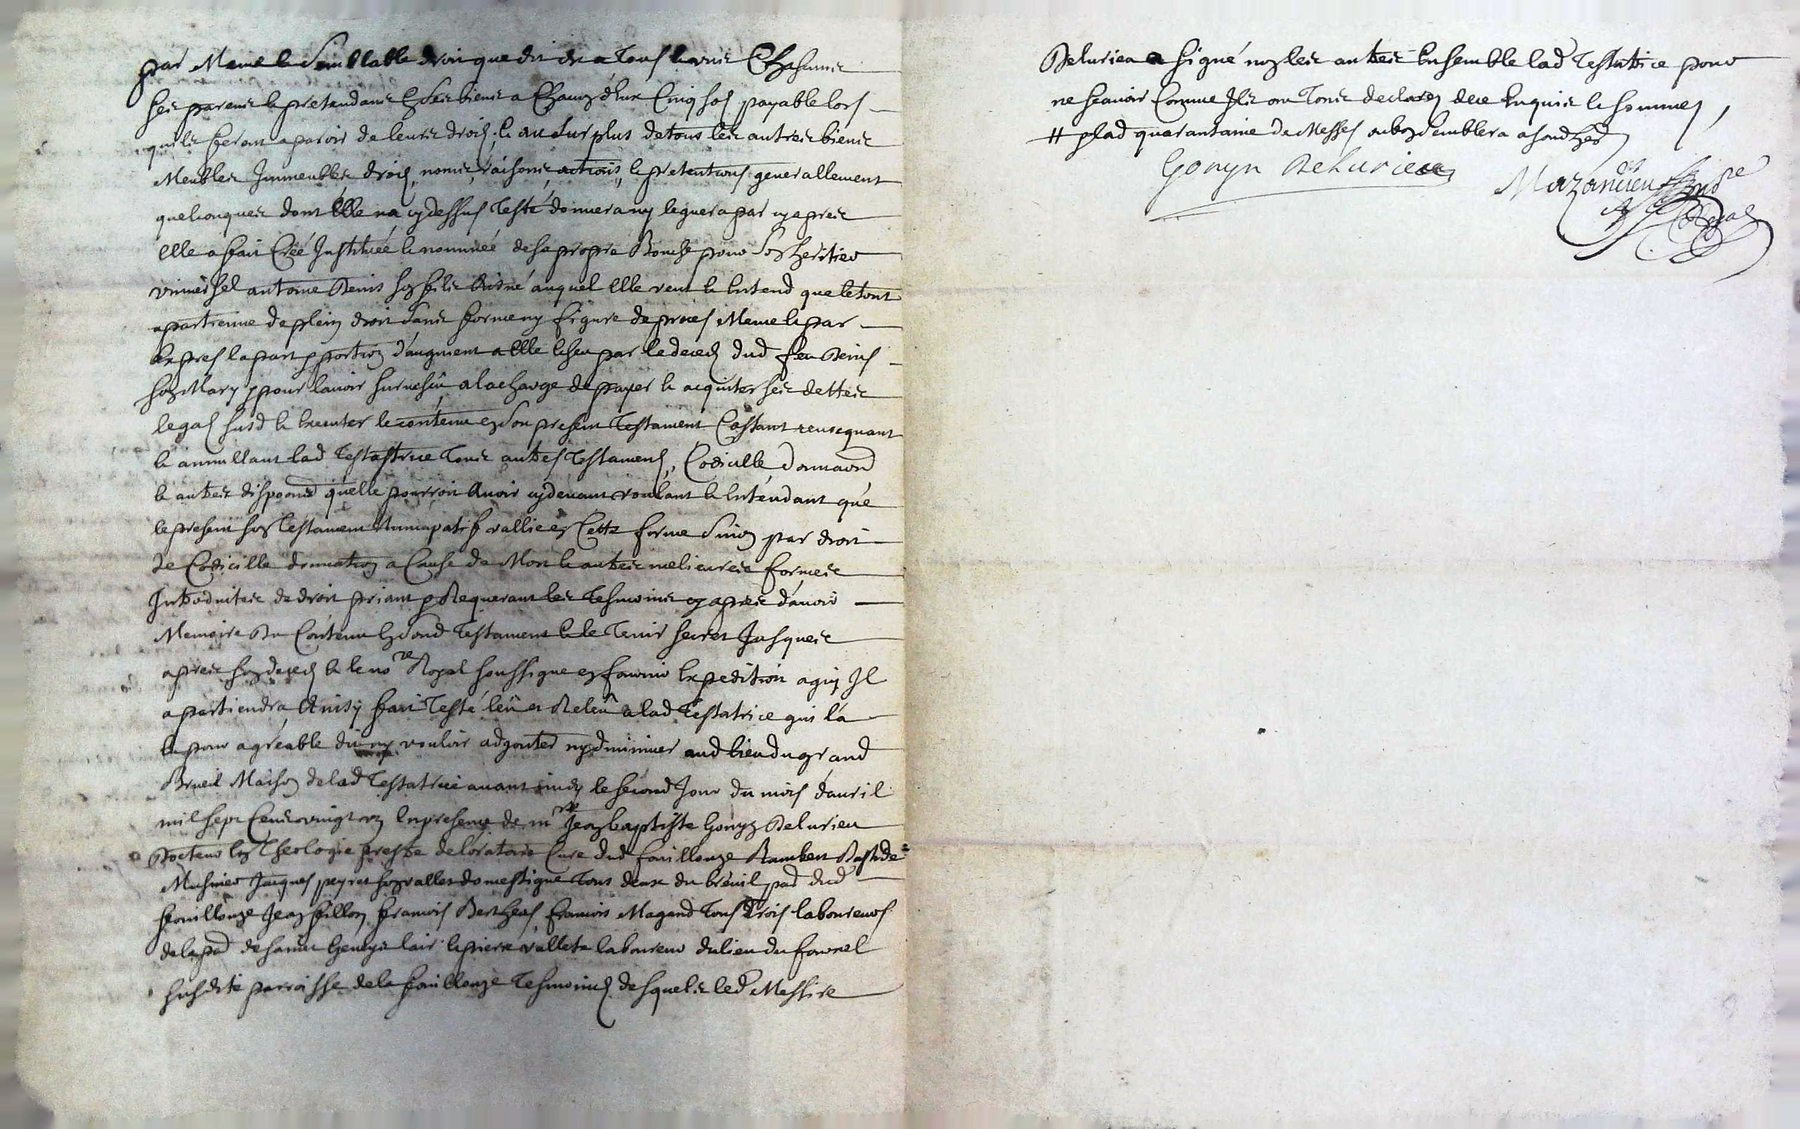 par Meme le Semblable droit que dit est a Tous les autres Chascuns
ses parens le pretendans es ses biens a Chacun d'eux Cinq sols payable lors
quils feront aparoir de leurs droits, le au Surplus de tous les autres biens
Meubles Immeubles droits, noms, raisons, actions, le pretentions generallement
quelconques dont Elle na cy dessus Testé donnera ny leguera par cy apres
elle a fait Créé Institué le nommé de sa propre Bouche pour Son heritier
universel antoine Denis son fils Aisné auquel Elle veut le Entend que le tout
apartienne de plein droit Sans forme ny figure de proces Meme le par
Expres la part portion d'augment a Elle par le deces dud feu Denis
son Mary pour lavoir survescu a la charge de payer le acquiter ses dettes
legats susd le Executer le contenu en Son present Testament Cassant revoquant
le annullant lad Testatrice Tous autres Testaments, Codicille donnaon
le autres dispoons quelle pourroit Avoir cy devant voulant le Entendant que
le present son Testament vallie en Cette forme Sinon par droit
de Codicille donnation a Cause de Mort le autres melieures formes
Introduites de droit priant Requerant les Tesmoins cy apres d'avoir
Memoire Du Contenu En Sond Testament le le Tenir secret Jusques
apres son deces le le nore Royal soussigne en fournir Expedition a qui Il
apartiendra Ainsy fait Testé leu et Releu a lad Testatrice qui la
pour agreable dit ny vouloir adjouter ny diminuer aud lieu du grand
Brueil Maison de lad Testatrice avant midy le second Jour du mois d'avril
mil sept Cens vingt En presence de mre Jean baptiste Gonyn Delurieu
Docteur En Theologie prestre de loratoire Cure dud fouillouze Rambert Bastide
Musnier Jacques peyret son vallet domestique Tous deux du breuil pad dud
fouillouze Jean fillon francois Bertheas francois Magand Tous Trois laboureurs
de la pad de saint Genest lair le pierre vallete laboureur du lieu du fournel
susdite parroisse de la fouillouze Tesmoins desquels led Messire
Delurieu a signé non les autres Ensemble lad Testatrice pour
ne scavoir Comme Ils ont Tous declaré de ce Enquis le sommes,
# plad quarantaine de Messes
Gonyn Delurieu
Mazandieu